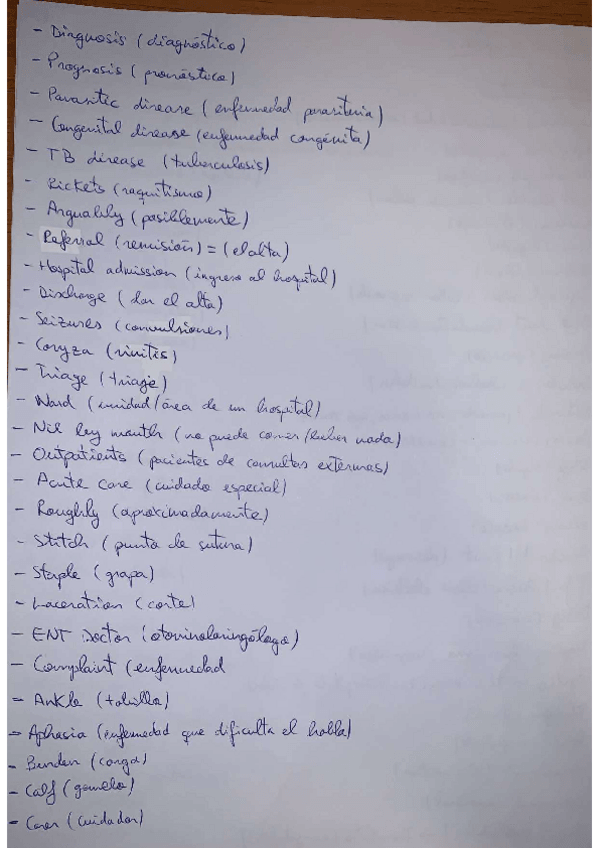 - Diagnosis (diagnóstico)
- Prognosis (pronóstico)
- Parasitec disease (enfermedad parasitaria)
- Congenital disease (enfermedad congénita)
- TB disease (tuberculosis)
- Rickets (raquitismo)
- Arguably (posiblemente)
- Referral (remisión) = (el alta)
- Hospital admission (ingreso al hospital)
- Discharge (dar el alta)
- Seizures (convulsiones)
- Coryza (rinitis)
- Triage (triaje)
- Ward (unidad/área de un hospital)
- Nil by mouth (no puede comer/beber nada)
- Outpatients (pacientes de consultas externas)
- Acute care (cuidado especial)
- Roughly (aproximadamente)
- Stitch (punto de sutura)
- Staple (grapa)
- Laceration (corte)
- ENT Doctor (otorrinolaringólogo)
- Complaint (enfermedad
- Ankle (tobillo)
- Aphasia (enfermedad que dificulta el habla)
- Burden (carga)
- Calf (gemelo)
- Carer (cuidador)